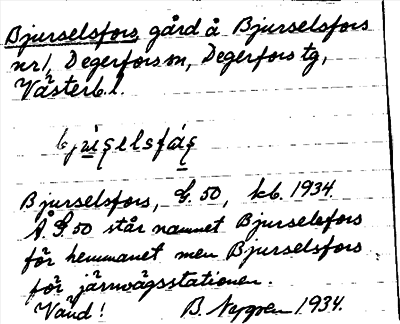 Bjurselsfors, gård å Bjurselsfors
nr 1, Degerfors sn, Degerfors tg,
Västerb. l.
Bjurselsfors, G. 50, kb. 1934.
Å G. 50 står namnet Bjurselefors
för hemmanet men Bjurselsfors
för järnvägsstationen.
Vänd! B. Nygren 1934.